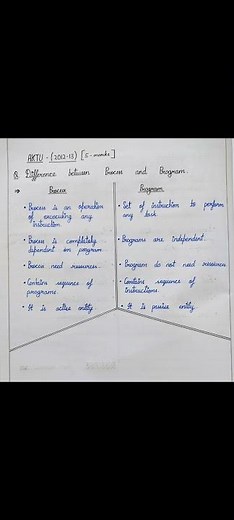 AKTU - (2012-13) [5-marks]
Q. Difference between Process and Program.
⇒ Process
• Process is an operation
of excecuting any
instruction
• Process is completely
dependent on program
• Process need resources.
• Contains sequence of
programs.
• It is active entity
Program
• Set of instruction to perform
any task.
• Programs are independent.
• Program do not need resources
• Contains sequence of
instructions.
• It is passive entity.